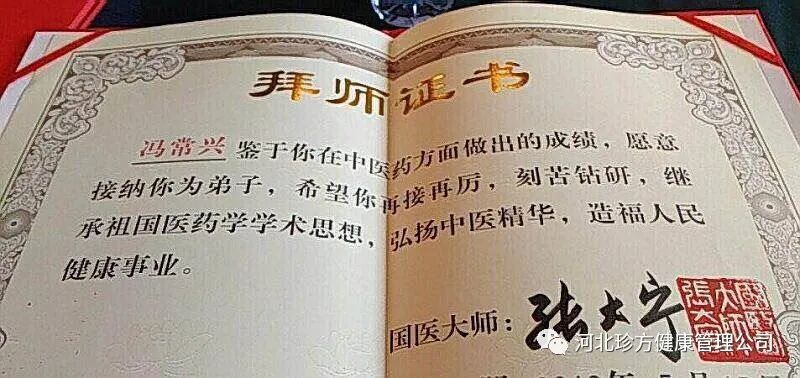 拜师证书
冯常兴 鉴于你在中医药方面做出的成绩，愿意
接纳你为弟子，希望你再接再厉，刻苦钻研，继
承祖国医药学学术思想，弘扬中医精华，造福人民
健康事业。
国医大师：张大宁
国医大师张大宁
河北珍方健康管理公司